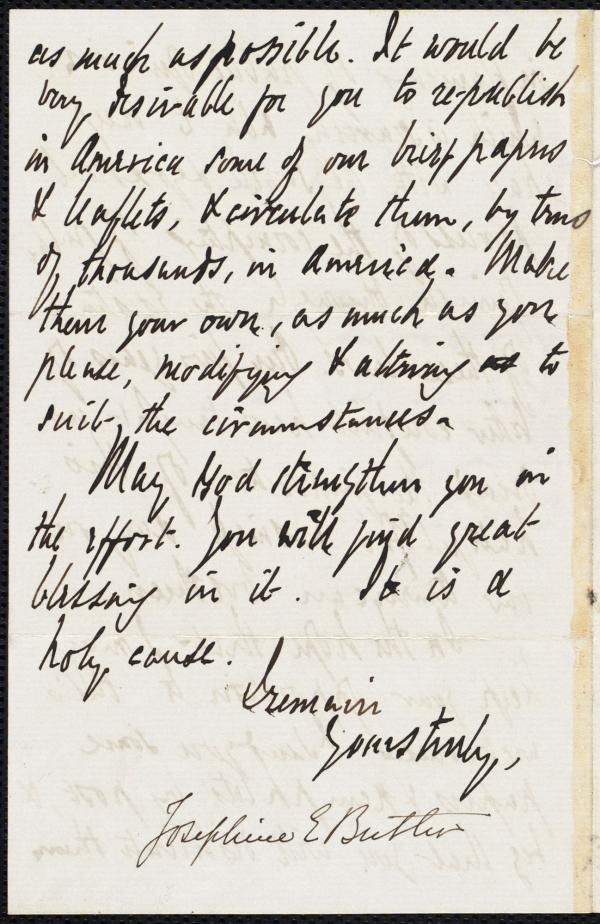 as much as possible. It would be
very desirable for you to re-publish
in America some of our brief papers
& leaflets, & circulate them, by tens
of thousands, in America. Make
them your own, as much as you
please, modifying & altering as to
suit the circumstances.
May God strengthen you in
the effort. You will find great
blessing in it. It is a
holy cause.
I remain
Yours truly,
Josephine E Butler